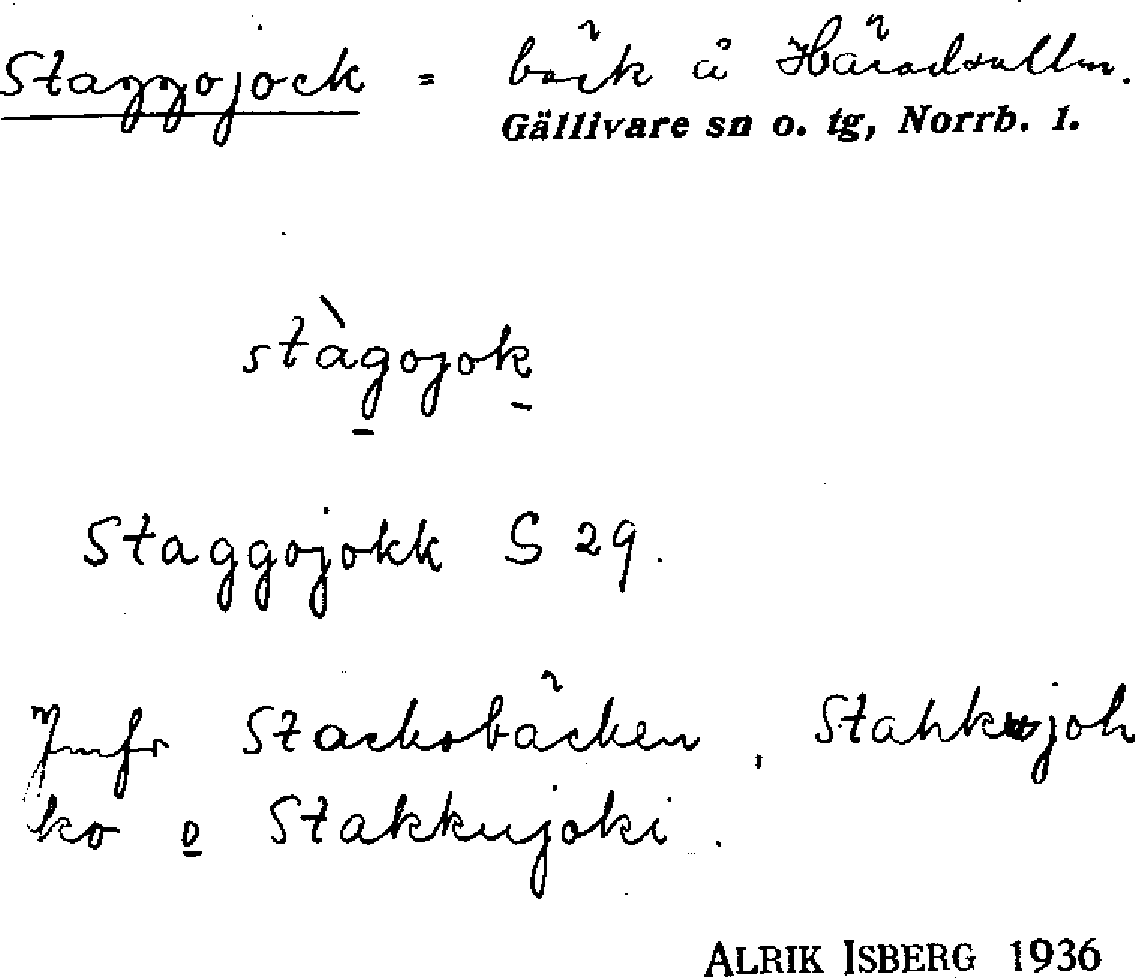 Staggojock = bäck å Häradsallm.
Gällivare sn o. tg, Norrb. l.
stàgojok
Staggojokk S 29.
Jmfr Stacksbäcken, Stahkojoh
ko o Stakkujoki.
ALRIK ISBERG 1936